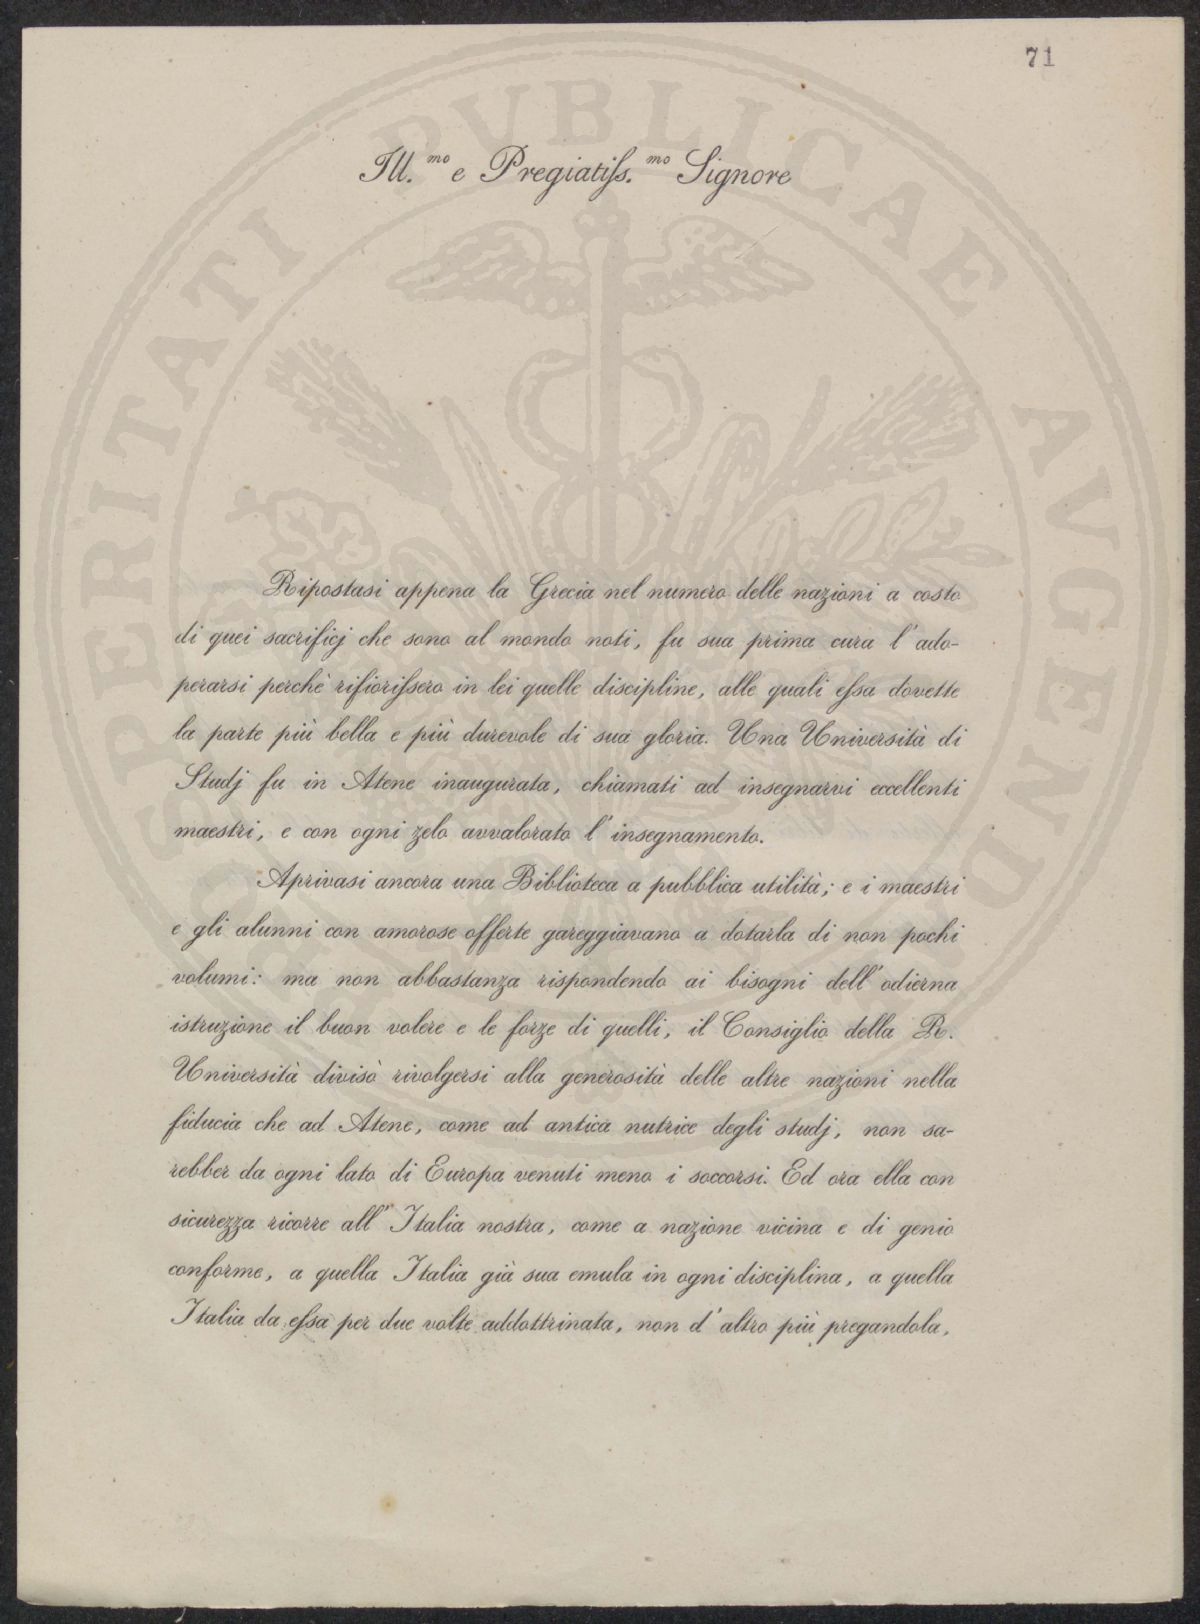 71
Ill.mo e Pregiatiſs.mo Signore
Ripostasi appena la Grecia nel numero delle nazioni a costo
di quei sacrificj che sono al mondo noti, fu sua prima cura l'ado-
perarsi perchè rifioriſsero in lei quelle discipline, alle quali eſsa dovette
la parte più bella e più durevole di sua gloria. Una Università di
Studj fu in Atene inaugurata, chiamati ad insegnarvi eccellenti
maestri, e con ogni zelo avvalorato l'insegnamento.
Aprivasi ancora una Biblioteca a pubblica utilità; e i maestri
e gli alunni con amorose offerte gareggiavano a dotarla di non pochi
volumi: ma non abbastanza rispondendo ai bisogni dell'odierna
istruzione il buon volere e le forze di quelli, il Consiglio della R.
Università divisò rivolgersi alla generosità delle altre nazioni nella
fiducia che ad Atene, come ad antica nutrice degli studj, non sa-
rebber da ogni lato di Europa venuti meno i soccorsi. Ed ora ella con
sicurezza ricorre all'Italia nostra, come a nazione vicina e di genio
conforme, a quella Italia già sua emula in ogni disciplina, a quella
Italia da eſsa per due volte addottrinata, non d'altro più pregandola,
PROSPERITATI PVBLICAE AVGENDAE